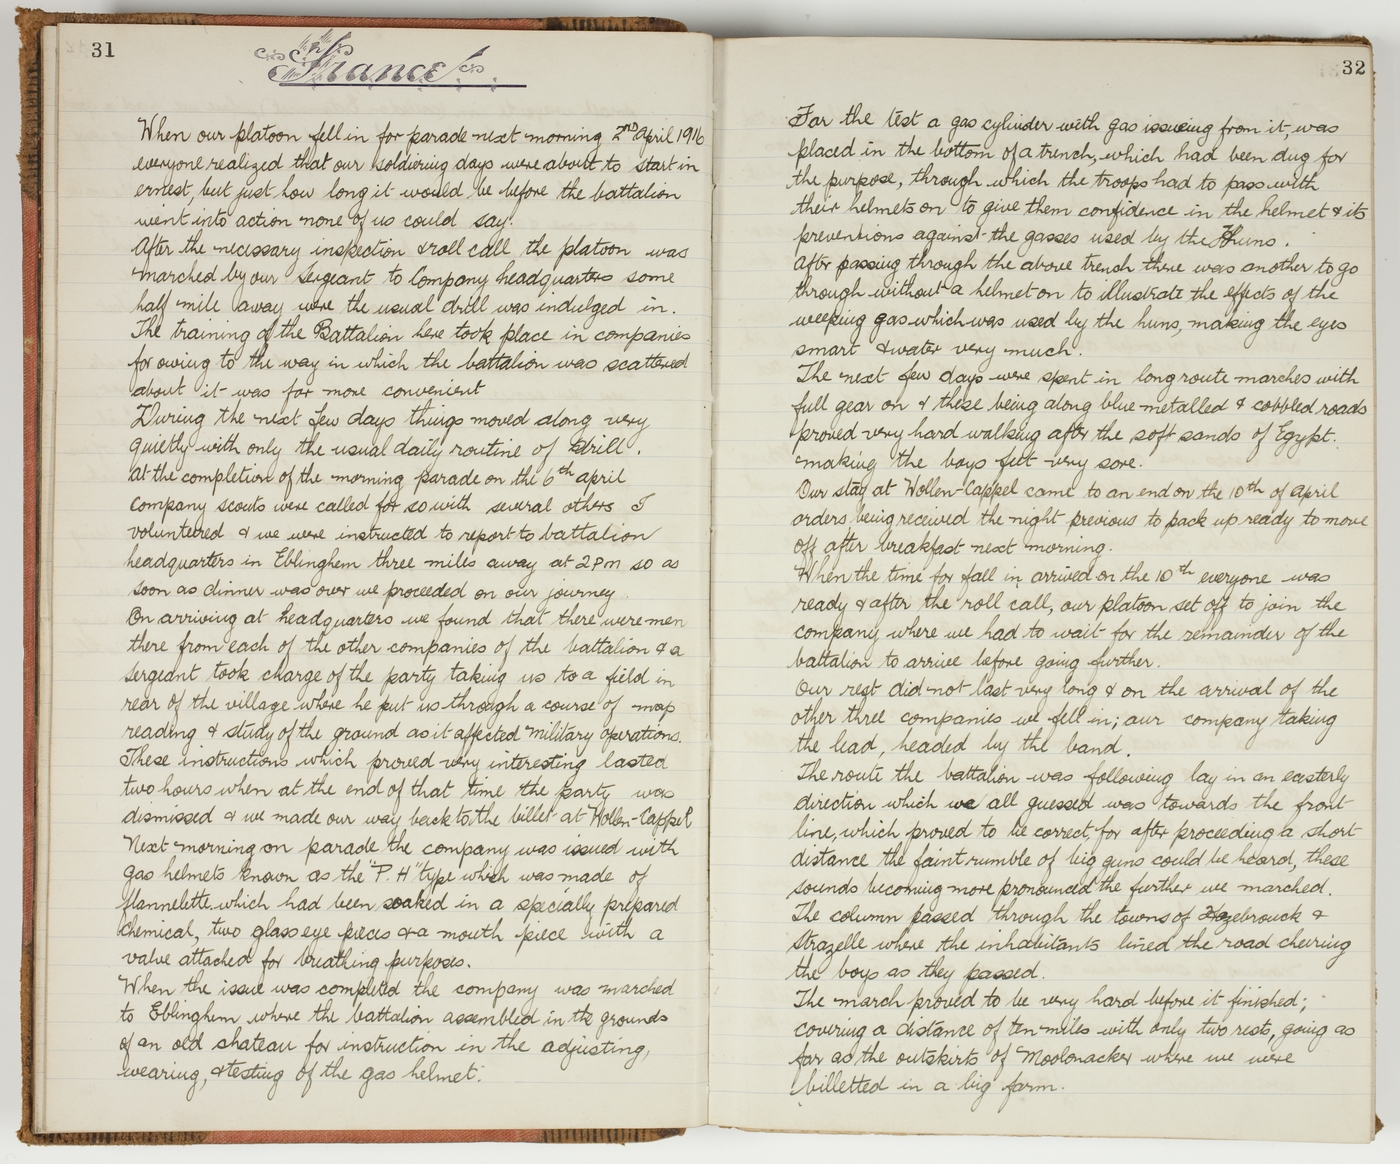 31
France
When our platoon fell in for parade next morning 2nd April 1916
everyone realized that our soldiering days were about to start in
ernest, but just how long it would be before the battalion
went into action none of us could say.
After the necessary inspection & roll call the platoon was
marched by our Sergeant to Company headquarters some
half mile away were the usual drill was indulged in.
The training of the Battalion here took place in companies
for owing to the way in which the battalion was scattered
about it was far more convenient
During the next few days things moved along very
quietly with only the usual daily routine of drill.
At the completion of the morning parade on the 6th April
Company scouts were called for so with several others I
volunteered & we were instructed to report to battalion
headquarters in Eblinghem three miles away at 2 Pm so as
soon as dinner was over we proceeded on our journey.
On arriving at headquarters we found that there were men
there from each of the other companies of the battalion & a
sergeant took charge of the party taking us to a field in
rear of the village where he put us through a course of map
reading & study of the ground as it affected military operations.
These instructions which proved very interesting lasted
two hours when at the end of that time the party was
dismissed & we made our way back to the billet at Wollen-Cappel
Next morning on parade the company was issued with
gas helmets known as the "P. H" type which was made of
flannelette which had been soaked in a specially prepared
chemical, two glass eye pieces & a mouth piece with a
valve attached for breathing purposes.
When the issue was completed the company was marched
to Eblinghem where the battalion assembled in the grounds
of an old shateau for instruction in the adjusting,
wearing, & testing of the gas helmet.
32
For the test a gas cylinder with gas issueing from it, was
placed in the bottom of a trench, which had been dug for
the purpose, through which the troops had to pass with
their helmets on to give them confidence in the helmet & its
preventions against the gasses used by the Huns.
After passing through the above trench there was another to go
through without a helmet on to illustrate the effects of the
weeping gas which was used by the huns, making the eyes
smart & water very much.
The next few days were spent in long route marches with
full gear on & these being along blue metalled & cobbled roads
proved very hard walking after the soft sands of Egypt.
making the boys feet very sore.
Our stay at Wollen-Cappel came to an end on the 10th of April
orders being received the night previous to pack up ready to move
off after breakfast next morning.
When the time for fall in arrived on the 10th everyone was
ready & after the roll call, our platoon set off to join the
company where we had to wait for the remainder of the
battalion to arrive before going further.
Our rest did not last very long & on the arrival of the
other three companies we fell in; our company taking
the lead, headed by the band.
The route the battalion was following lay in an easterly
direction which we all guessed was towards the front
line, which proved to be correct, for after proceeding a short
distance the faint rumble of big guns could be heard, these
sounds becoming more pronounced the further we marched.
The column passed through the towns of Hazebrouck &
Strazelle where the inhabitants lined the road cheering
the boys as they passed.
The march proved to be very hard before it finished;
covering a distance of ten miles with only two rests, going as
far as the outskirts of Moolonacker where we were
billetted in a big farm.